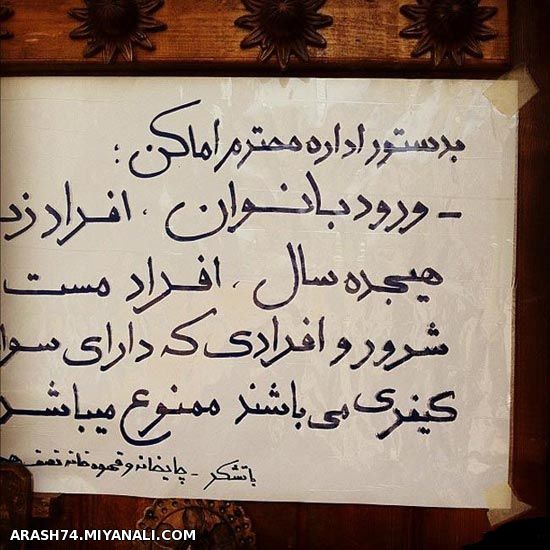 بدستور اداره محترم اماکن :
- ورود بانوان ، افراد زیر
هیجده سال ، افراد مست
شرور و افرادی که دارای سوا
کیفری می باشند ممنوع میباشد
با تشکر - چایخانه و قهوه خانه
ARASH74.MIYANALI.COM